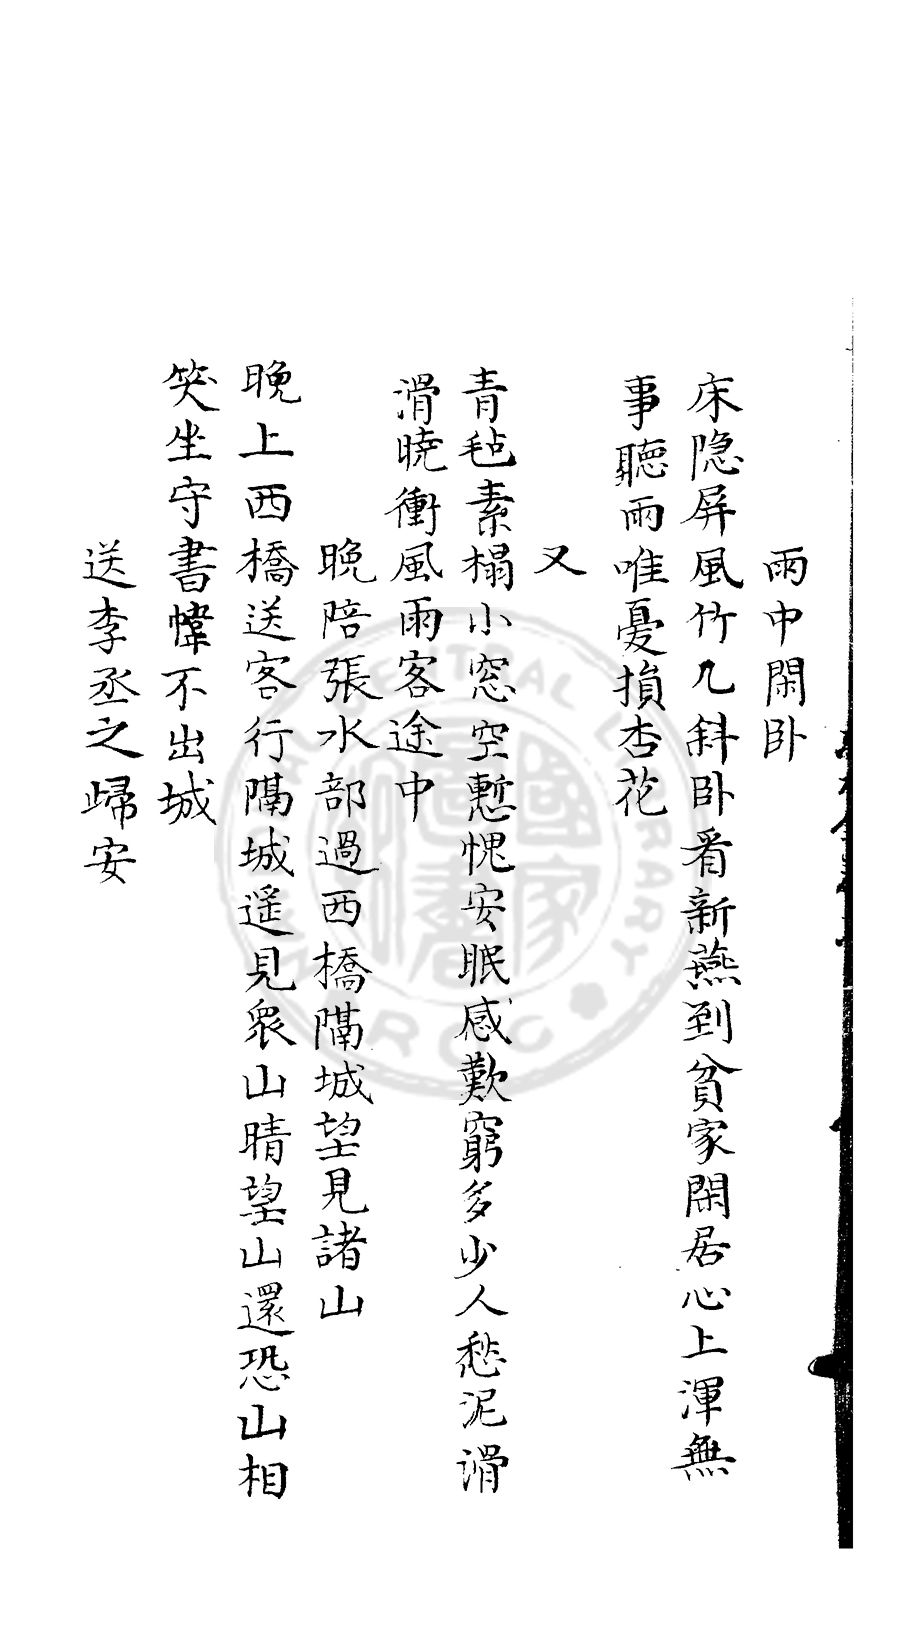 雨中閑卧
床隐屏風竹几斜卧看新燕到貧家閑居心上渾無
事聽雨唯憂損杏花
又
青毡素榻小窓空慙愧安眠感歎窮多少人愁泥滑
滑曉衝風雨客途中
晚陪張水部過西橋隔城望見諸山
晚上西橋送客行隔城遥見衆山晴望山還恐山相
笑坐守書幃不出城
送李丞之歸安
NATIONAL CENTRAL LIBRARY
R.O.C.
國家圖書館